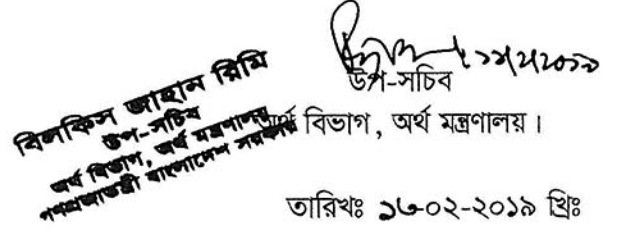 বিলকিস জাহান রিমি
উপ-সচিব
অর্থ বিভাগ, অর্থ মন্ত্রণালয়
গণপ্রজাতন্ত্রী বাংলাদেশ সরকার
উপ-সচিব
অর্থ বিভাগ, অর্থ মন্ত্রণালয়।
তারিখঃ ১৬-০২-২০১৯ খ্রিঃ